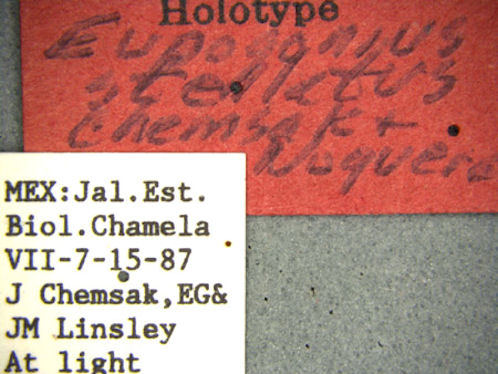 Holotype
Eupogonius
stellatus
Chemsak +
Noguera
MEX:Jal.Est.
Biol.Chamela
VII-7-15-87
J Chemsak,EG&
JM Linsley
At light